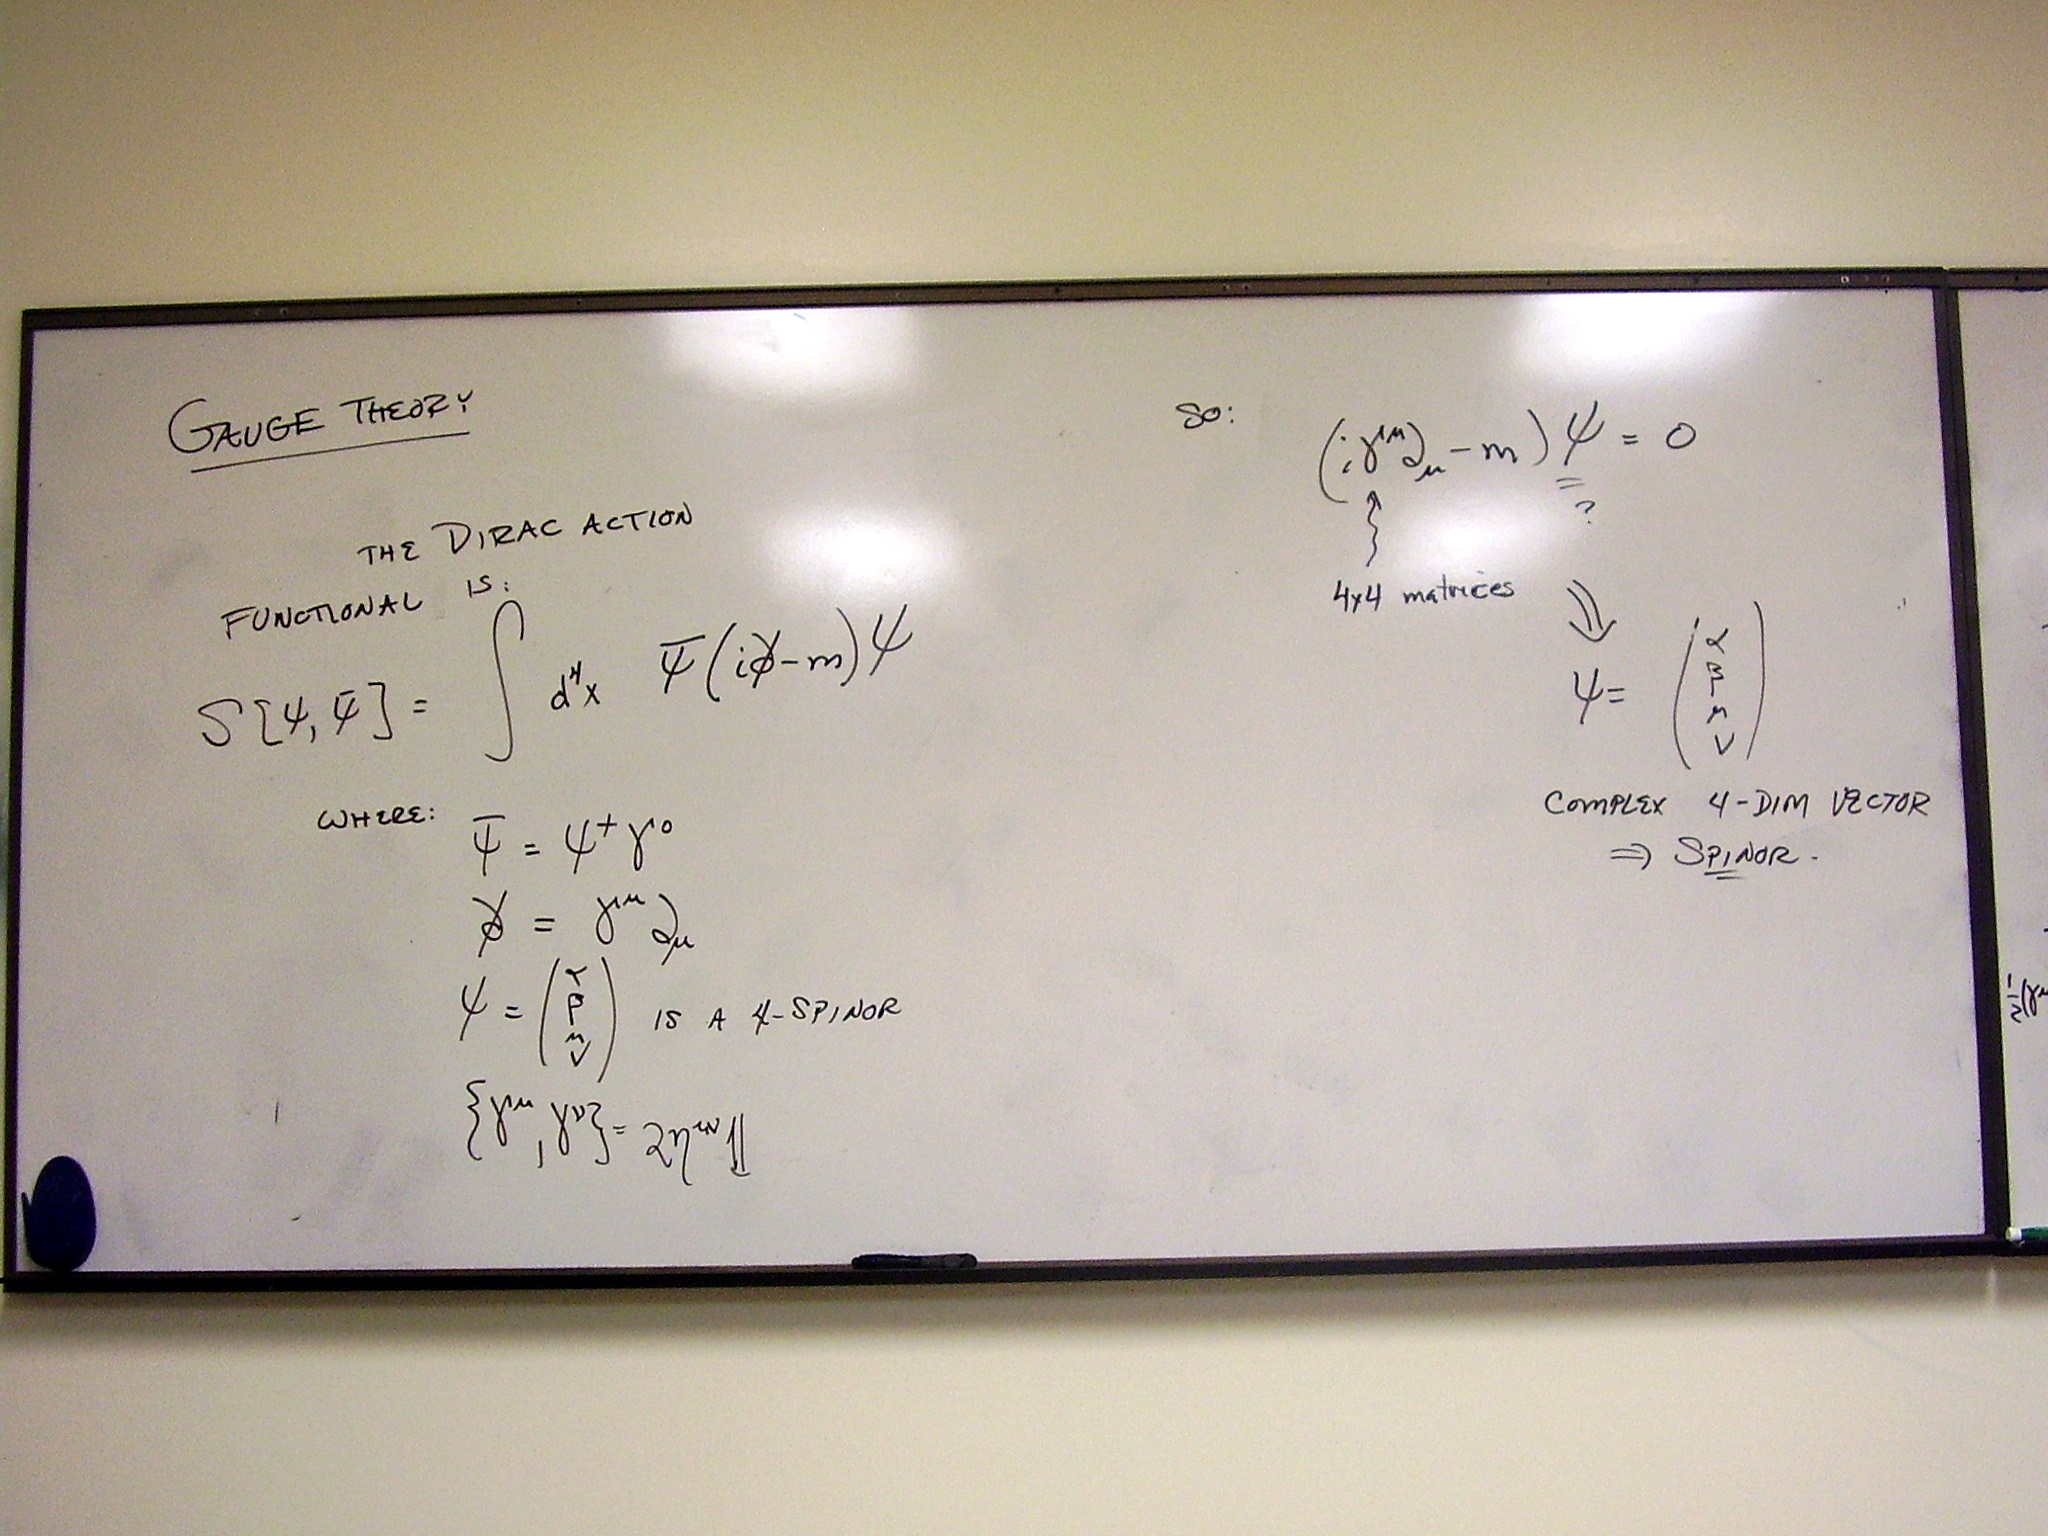 GAUGE THEORY
THE DIRAC ACTION
FUNCTIONAL IS:
S[ψ, ψ̄] = ∫ d⁴x ψ̄(i∂̸ - m)ψ
WHERE:
ψ̄ = ψ⁺γ⁰
∂̸ = γ^μ ∂_μ
ψ = (α β μ ν) IS A 4-SPINOR
{γ^μ, γ^ν} = 2η^μν 𝟙
SO:
(iγ^μ ∂_μ - m)ψ = 0
?
4x4 matrices
ψ = (α β μ ν)
COMPLEX 4-DIM VECTOR
⇒ SPINOR.
½(γ^μ